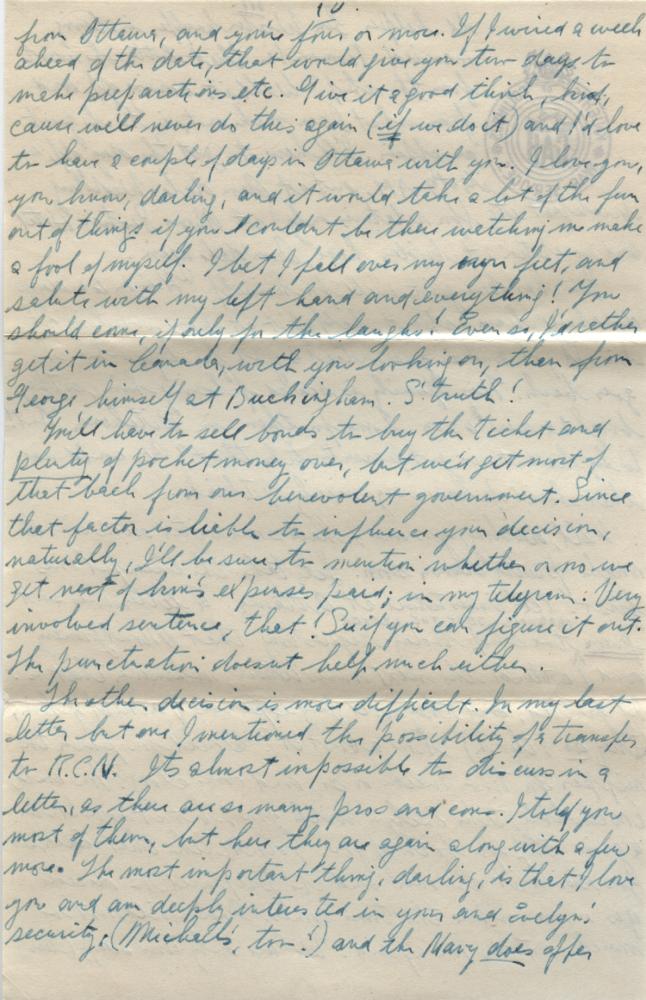 10.
from Ottawa, and you're four or more. If I wired a week
ahead of the date, that would give you two days to
make preparations etc. Give it a good think, hind,
cause we'll never do this again (if we do it) and I'd love
to have a couple of days in Ottawa with you. I love you,
you know, darling, and it would take a lot of the fun
out of things if you couldn't be there watching me make
a fool of myself. I bet I fall over my own feet, and
salute with my left hand and everything! You
should come, if only for the laughs! Even so, I'd rather
get it in Canada, with you looking on, than from
George himself at Buckingham. S'truth!
You'll have to sell bonds to buy the ticket and
plenty of pocket money over, but we'd get most of
that back from our benevolent government. Since
that factor is liable to influence your decision,
naturally, I'll be sure to mention whether or no we
get next of kin's expenses paid; in my telegram. Very
involved sentence, that! See if you can figure it out.
The punctuation doesn't help much either.
The other decision is more difficult. In my last
letter but one I mentioned the possibility of a transfer
to R.C.N. Its almost impossible to discuss in a
letter, as there are so many pros and cons. I told you
most of them, but here they are again along with a few
more. The most important thing, darling, is that I love
you and am deeply interested in your and Evelyn's
security, (Michael's, too!) and the Navy does offer